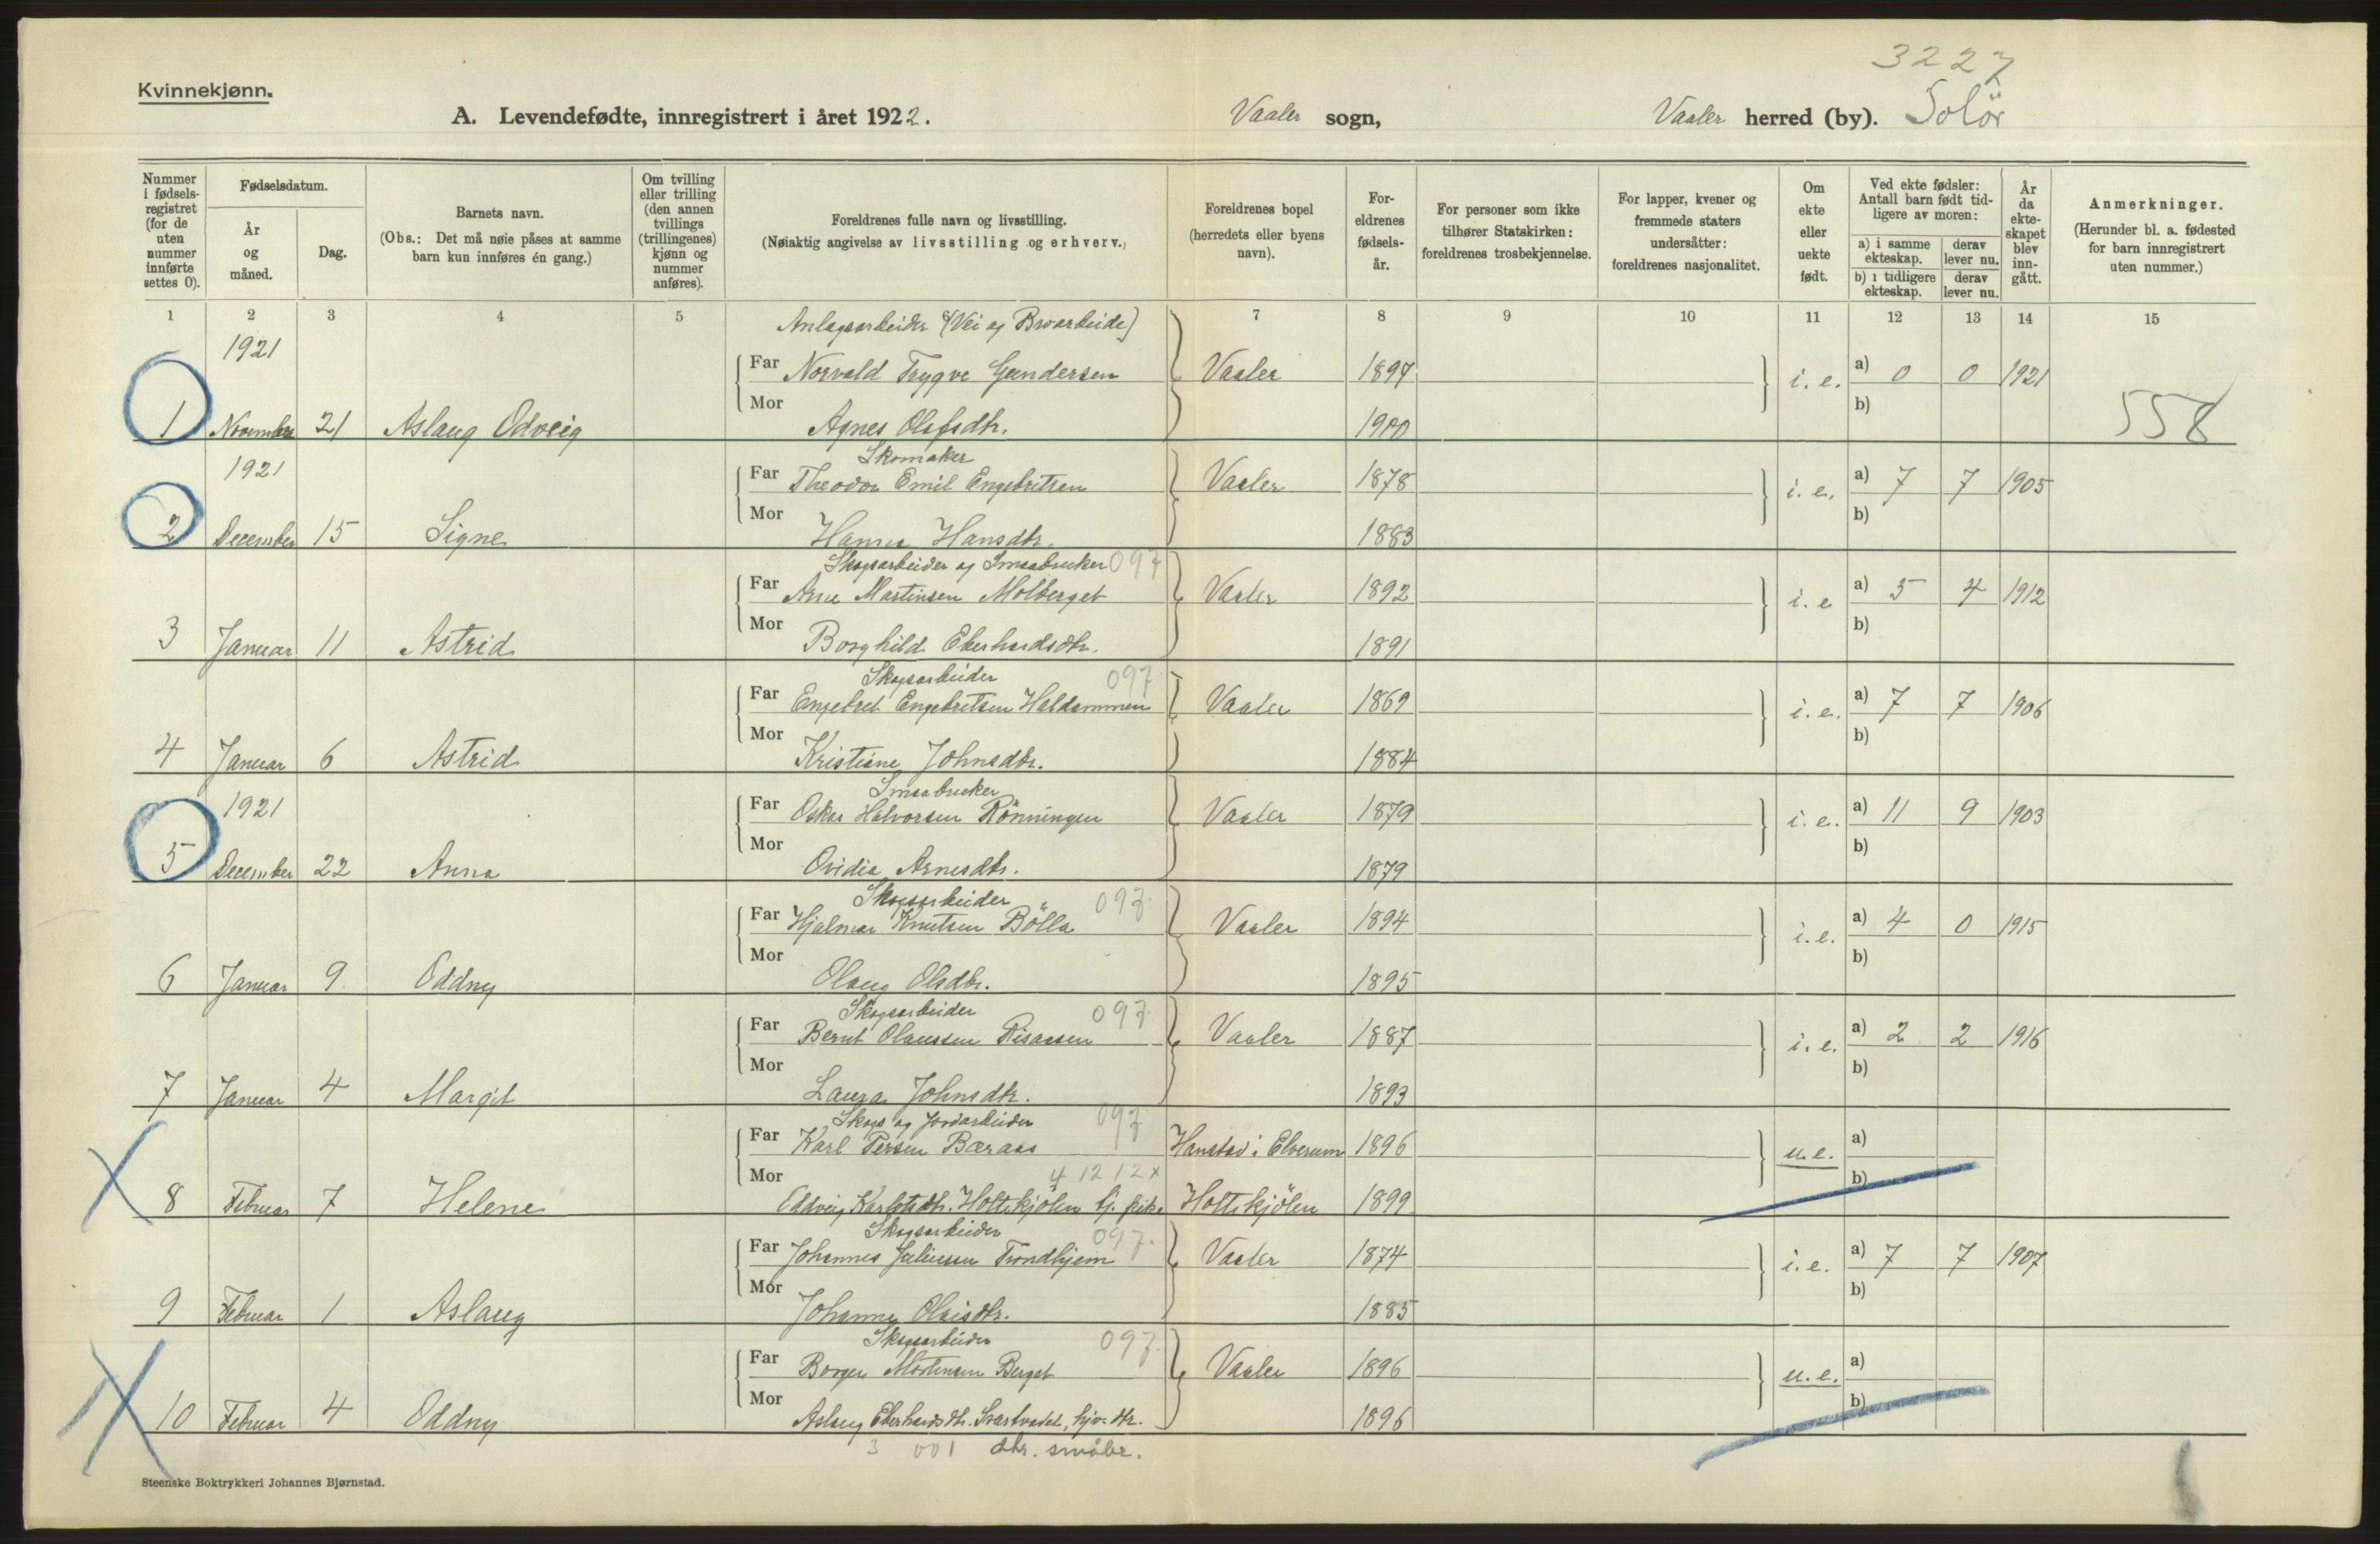 3227
Kvinnekjønn.
A. Levendefødte, innregistrert i året 1922. Vaaler sogn, Vaaler herred (by). Solör
Nummer i fødsels-registret (for de uten nummer innførte settes 0).
Fødselsdatum.
År og måned.
Dag.
Barnets navn.
(Obs.: Det må nøie påses at samme barn kun innføres én gang.)
Om tvilling eller trilling (den annen tvillings (trillingenes) kjønn og nummer anføres).
Foreldrenes fulle navn og livsstilling.
(Nøiaktig angivelse av livsstilling og erhverv.)
Foreldrenes bopel (herredets eller byens navn).
For-eldrenes fødsels-år.
For personer som ikke tilhører Statskirken: foreldrenes trosbekjennelse.
For lapper, kvener og fremmede staters undersåtter: foreldrenes nasjonalitet.
Om ekte eller uekte født.
Ved ekte fødsler: Antall barn født tid-ligere av moren:
a) i samme ekteskap. derav lever nu.
b) i tidligere ekteskap. derav lever nu.
År da ekte-skapet blev inn-gått.
Anmerkninger.
(Herunder bl. a. fødested for barn innregistrert uten nummer.)
1 2 3 4 5 6 7 8 9 10 11 12 13 14 15
Anlagsarbeider (Vei og Broarbeide)
1921
Far Norvald Trygve Gundersen Vaaler 1897 i. e. a) 0 0 1921
Mor b)
1 November 21 Aslaug Odveig Agnes Olafsdtr. 1900 558
Skomaker
1921 Far Theodor Emil Engebritsen Vaaler 1878 i. e. a) 7 7 1905
Mor b)
2 December 15 Signe Hanna Hansdtr. 1883
Skogsarbeider og Smaabruker 097
Far Arne Martinsen Molberget Vaaler 1892 i. e a) 5 4 1912
Mor b)
3 Januar 11 Astrid Borghild Eberhardsdtr. 1891
Skogsarbeider 097
Far Engebret Engebretsen Haldammen Vaaler 1869 i. e. a) 7 7 1906
Mor b)
4 Januar 6 Astrid Kristiane Johnsdtr. 1884
Smaabruker
1921 Far Oskar Halvorsen Rönningen Vaaler 1879 i. e. a) 11 9 1903
Mor b)
5 December 22 Anna Ovidia Arnesdtr. 1879
Skogsarbeider 097
Far Hjalmar Knutsen Bölla Vaaler 1894 i. e. a) 4 0 1915
Mor b)
6 Januar 9 Oddny Olaug Olsdtr. 1895
Skogsarbeider 097
Far Bernt Olaussen Risaasen Vaaler 1887 i. e. a) 2 2 1916
Mor b)
7 Januar 4 Margit Laura Johnsdtr. 1893
Skogs og Jordarbeider 097
Far Karl Persen Bæraas Hanstad i Elverum 1896 u. e. a)
Mor 4 12 12 x b)
8 Februar 7 Helene Eddveig Karlstdtr. Holtskjölen tj. pike Holtskjölen 1899
Skogsarbeider 097
Far Johannes Juliussen Trondhjem Vaaler 1874 i. e. a) 7 7 1907
Mor b)
9 Februar 1 Aslaug Johanne Olaisdtr. 1885
Skogsarbeider 097
Far Borger Mortensen Berget Vaaler 1896 u. e. a)
Mor b)
10 Februar 4 Oddny Aslaug Eberhardsdtr. Svartvadet, hjv. dtr. 1896
3 001 dtr. småbr.
Steenske Boktrykkeri Johannes Bjørnstad.